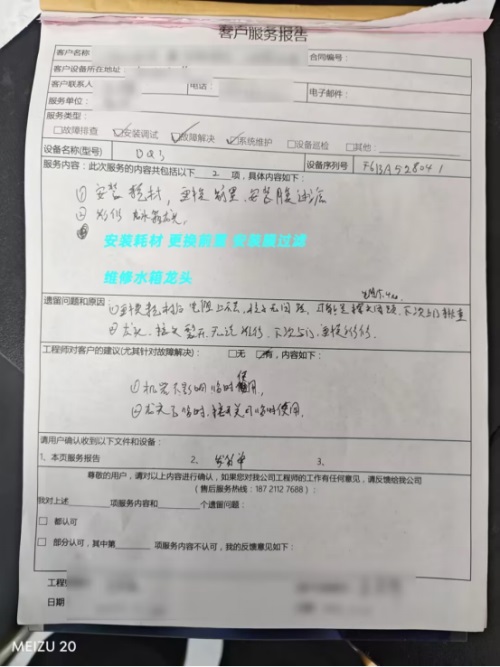 客户服务报告
客户名称 合同编号:
客户设备所在地址:
客户联系人 电话: 电子邮件:
服务单位:
服务类型:
□故障排查 ☑安装调试 ☑故障解决 ☑系统维护 □设备巡检 □其他:
设备名称(型号) DQ3 设备序列号 F6BA528041
服务内容: 此次服务的内容共包括以下 2 项,具体内容如下:
① 安装耗材, 更换前置, 安装膜过滤
②
安装耗材 更换前置 安装膜过滤
维修水箱龙头
遗留问题和原因 ① 更换耗材后电阻上不去, 下次上门排查
② 龙头, 无法维修, 下次上门, 更换维修
工程师对客户的建议(尤其针对故障解决): □无 ☑有,内容如下:
① 机器不影响临时使用,
② 临时使用.
请用户确认收到以下文件和设备:
1、本页服务报告 2、 3、
尊敬的用户,请对以上内容进行确认,如果您对我公司工程师的工作有任何意见,请反馈给我公司
(售后服务热线:187 2112 7688):
我对上述 项服务内容和 个遗留问题:
□ 都认可
□ 部分认可,其中第 项服务内容不认可,我的反馈意见如下:
日期
MEIZU 20